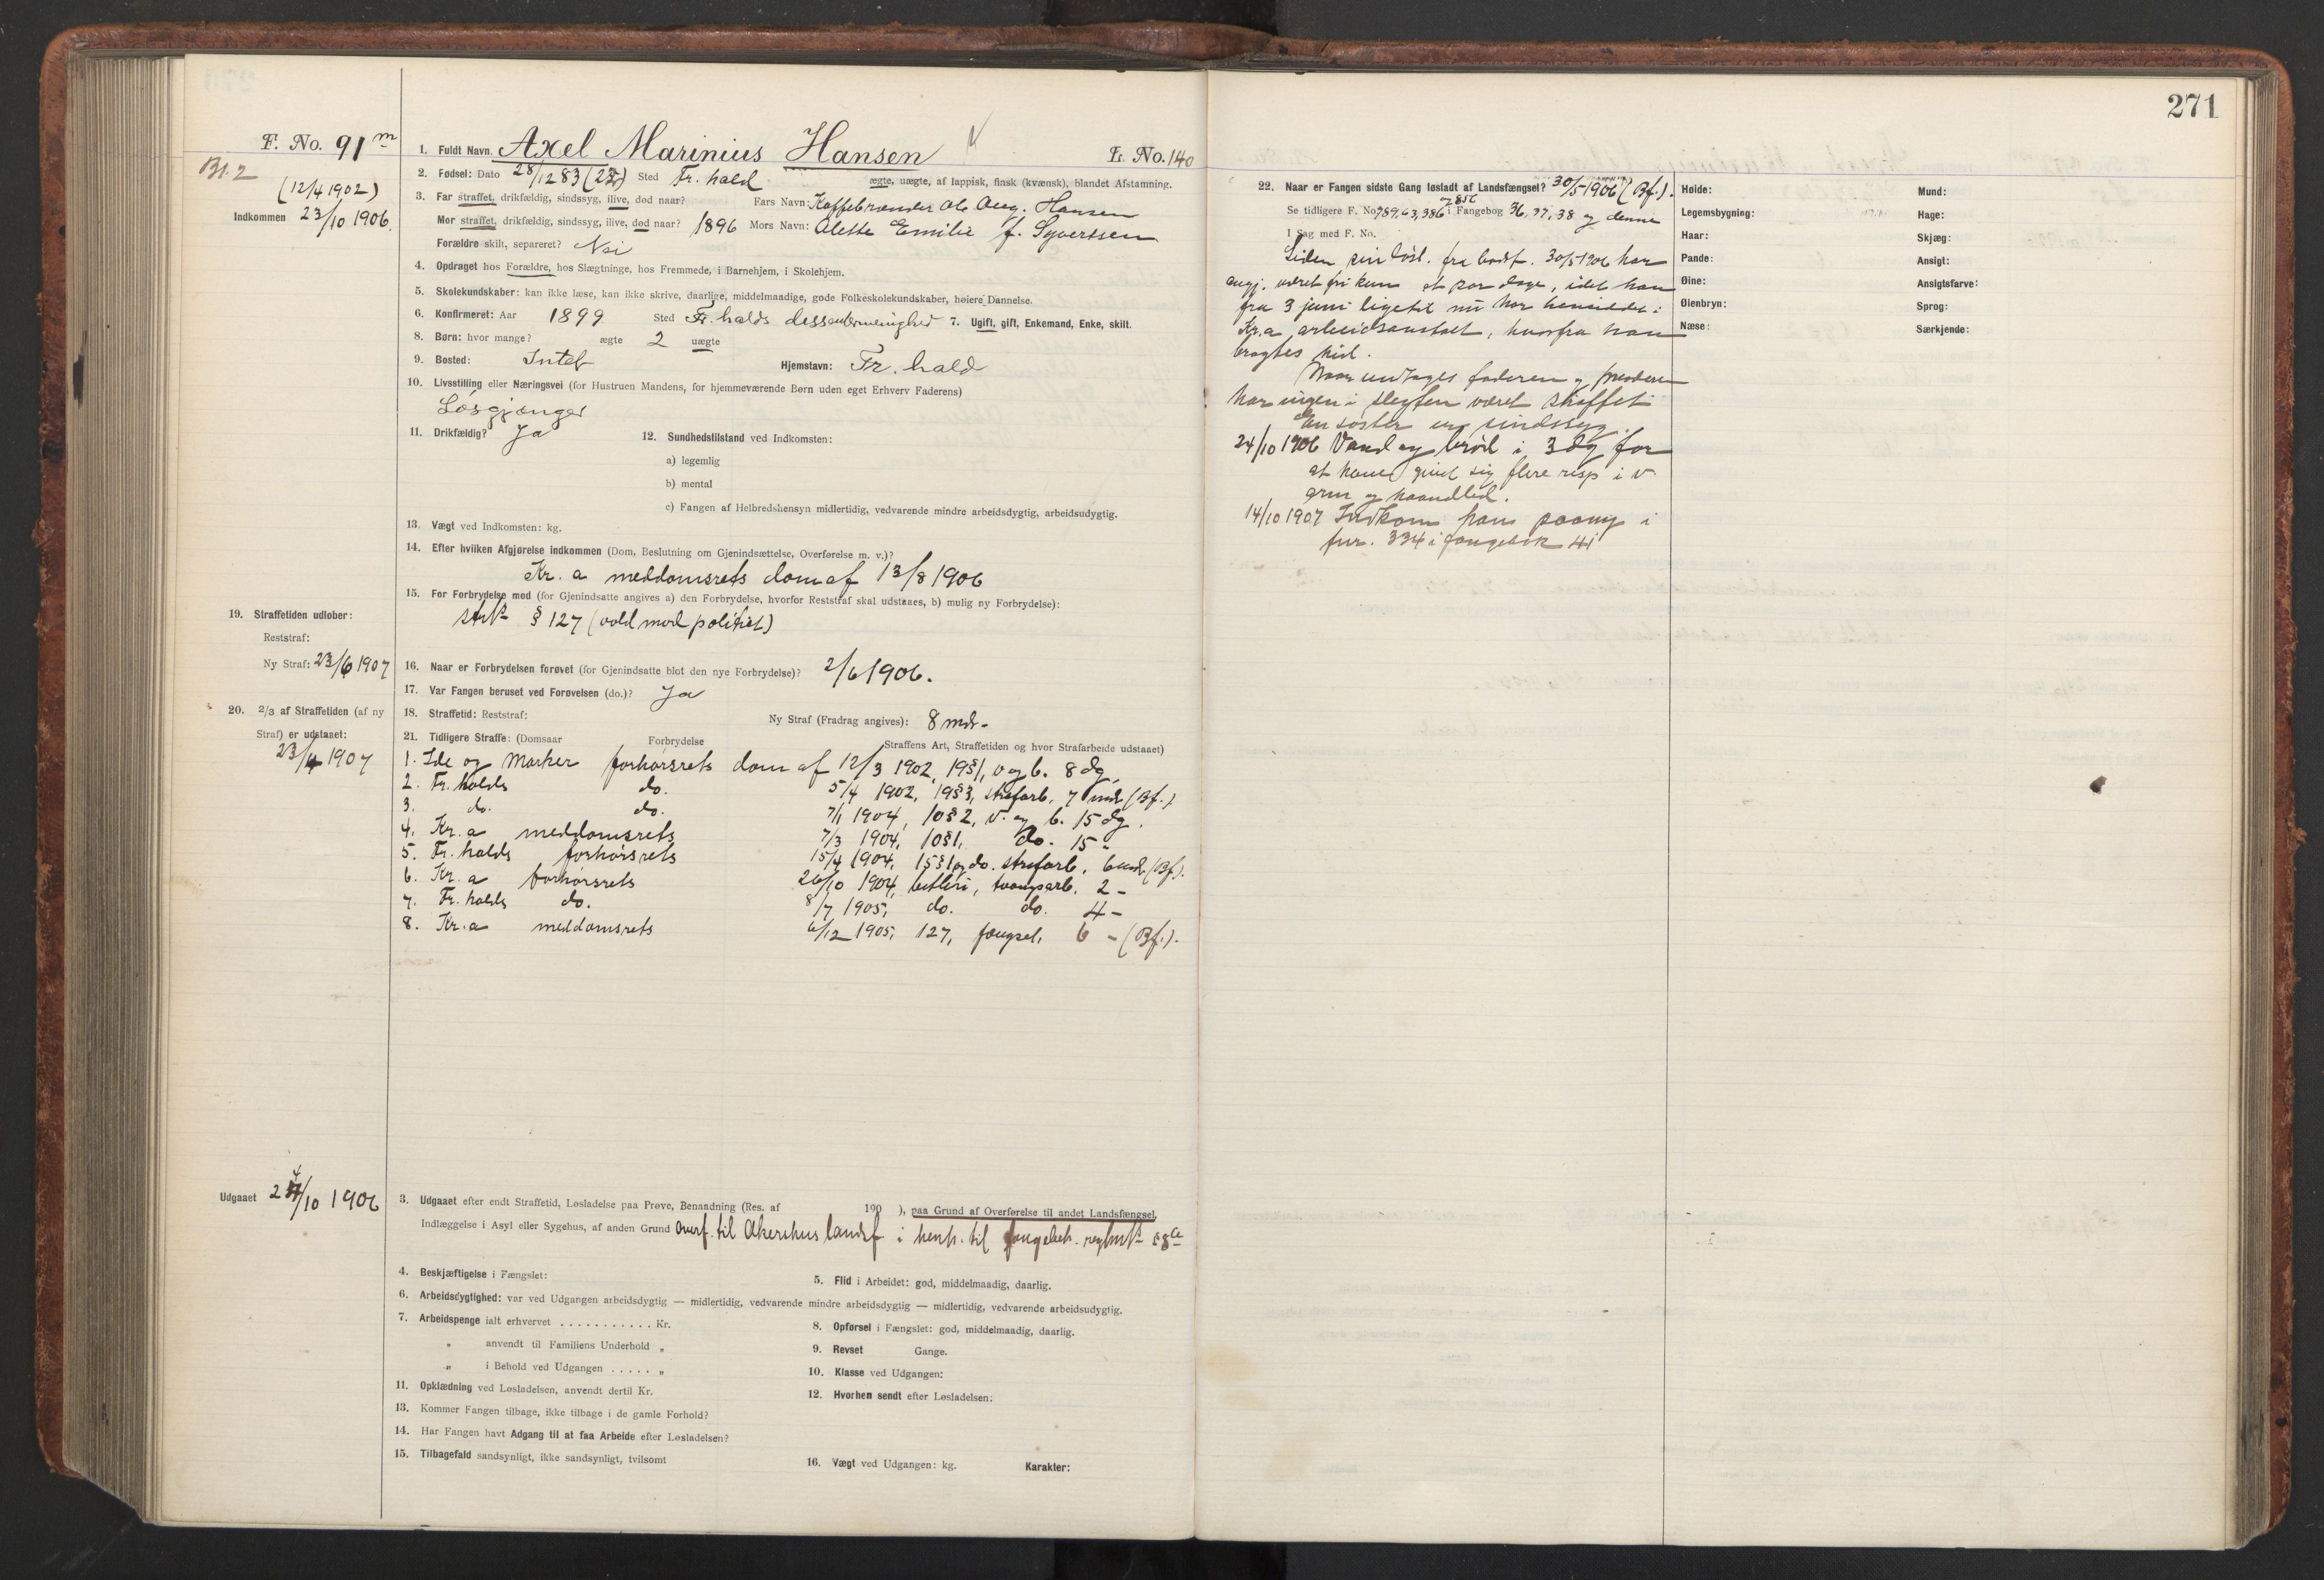 271
F. No. 91 m
1. Fuldt Navn. Axel Marinius Hansen
L. No. 140
Bl. 2
(12/4 1902)
Indkommen 23/10 1906.
2. Fødsel: Dato 28/12 83 (22) Sted Fr.hald ægte, uægte, af lappisk, finsk (kvænsk), blandet Afstamning.
3. Far straffet, drikfældig, sindssyg, ilive, død naar? Fars Navn: Kaffebrænder Ole Aug. Hansen
Mor straffet, drikfældig, sindssyg, ilive, død naar? 1896 Mors Navn: Alette Emilie f. Syvertsen
Forældre skilt, separeret? Nei
4. Opdraget hos Forældre, hos Slægtninge, hos Fremmede, i Barnehjem, i Skolehjem.
5. Skolekundskaber: kan ikke læse, kan ikke skrive, daarlige, middelmaadige, gode Folkeskolekundskaber, høiere Dannelse.
6. Konfirmeret: Aar 1899 Sted Fr.halds dissentermenighed 7. Ugift, gift, Enkemand, Enke, skilt.
8. Børn: hvor mange? ægte 2 uægte
9. Bosted: Intet Hjemstavn: Fr.hald
10. Livsstilling eller Næringsvei (for Hustruen Mandens, for hjemmeværende Børn uden eget Erhverv Faderens)
Løsgjænger
11. Drikfældig? Ja 12. Sundhedstilstand ved Indkomsten:
a) legemlig
b) mental
c) Fangen af Helbredshensyn midlertidig, vedvarende mindre arbeidsdygtig, arbeidsudygtig.
13. Vægt ved Indkomsten: kg.
14. Efter hvilken Afgjørelse indkommen (Dom, Beslutning om Gjenindsættelse, Overførelse m. v.)?
Kr.a meddomsrets dom af 13/8 1906
15. For Forbrydelse mod (for Gjenindsatte angives a) den Forbrydelse, hvorfor Reststraf skal udstaaes, b) mulig ny Forbrydelse):
§ 127 (vold mod politiet)
19. Straffetiden udløber:
Reststraf:
Ny Straf: 23/6 1907
16. Naar er Forbrydelsen forøvet (for Gjenindsatte blot den nye Forbrydelse)? 2/6 1906.
17. Var Fangen beruset ved Forøvelsen (do.)? Ja
20. 2/3 af Straffetiden (af ny
Straf) er udstaaet:
23/4 1907
18. Straffetid: Reststraf: Ny Straf (Fradrag angives): 8 mdr.
21. Tidligere Straffe: (Domsaar Forbrydelse Straffens Art, Straffetiden og hvor Strafarbeide udstaaet)
1. Ide og Marker forhørsrets dom af 12/3 1902, 19§1, v og b. 8 dg.
2. Fr.halds do. 5/4 1902, 19§3, strafarb. 7 mdr (Bf.)
3. do. do. 7/1 1904, 10§2, v. og b. 15 dg.
4. Kr.a meddomsrets 7/3 1904, 10§1, do. 15 "
5. Fr.halds forhørsrets 15/4 1904, 15§1 og do. strafarb. 6 mdr (Bf).
6. Kr.a forhørsrets 26/10 1904, betleri, tvangsarb. 2 -
7. Fr.halds do. 8/7 1905, do. do. 4 -
8. Kr.a meddomsrets 6/12 1905, 127, fængsel, 6 - (Bf.).
Udgaaet 24/10 1906
3. Udgaaet efter endt Straffetid, Løsladelse paa Prøve, Benaadning (Res. af 190 ), paa Grund af Overførelse til andet Landsfængsel,
Indlæggelse i Asyl eller Sygehus, af anden Grund Overf. til Akershus landsf i henh. til
4. Beskjæftigelse i Fængslet: 5. Flid i Arbeidet: god, middelmaadig, daarlig.
6. Arbeidsdygtighed: var ved Udgangen arbeidsdygtig — midlertidig, vedvarende mindre arbeidsdygtig — midlertidig, vedvarende arbeidsudygtig.
7. Arbeidspenge ialt erhvervet . . . . . . . . . . . Kr. 8. Opførsel i Fængslet: god, middelmaadig, daarlig.
" anvendt til Familiens Underhold " 9. Revset Gange.
" i Behold ved Udgangen . . . . . " 10. Klasse ved Udgangen:
11. Opklædning ved Løsladelsen, anvendt dertil Kr. 12. Hvorhen sendt efter Løsladelsen:
13. Kommer Fangen tilbage, ikke tilbage i de gamle Forhold?
14. Har Fangen havt Adgang til at faa Arbeide efter Løsladelsen?
15. Tilbagefald sandsynligt, ikke sandsynligt, tvilsomt 16. Vægt ved Udgangen: kg. Karakter:
22. Naar er Fangen sidste Gang løsladt af Landsfængsel? 30/5 1906 (Bf.).
og 856
Se tidligere F. No. 789, 63, 386 i Fangebog 36, 37, 38 og denne
I Sag med F. No.
Siden sin løsl. fra bodsf. 30/5 1906 har
angj. været fri kun et par dage, idet han
fra 3 juni ligetil nu har hensiddet i
Kr.a arbeidsanstalt, hvorfra han
bragtes hid.
Naar undtages faderen og moderen
har ingen i slegten været straffet
En søster er sindssyg.
24/10 1906 Vand og brød i 3 dg for
at have givet sig flere risp i v.
arm og haandled.
14/10 1907 Indkom han paany i
fnr. 334 i fangebok 41
Høide:
Legemsbygning:
Haar:
Pande:
Øine:
Øienbryn:
Næse:
Mund:
Hage:
Skjæg:
Ansigt:
Ansigtsfarve:
Sprog:
Særkjende: